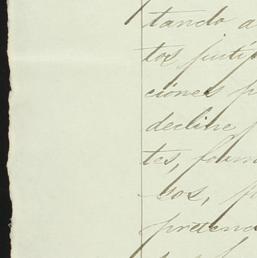 tando a
tos justi
ciones p
decline p
tes, form
sos, p
pretend